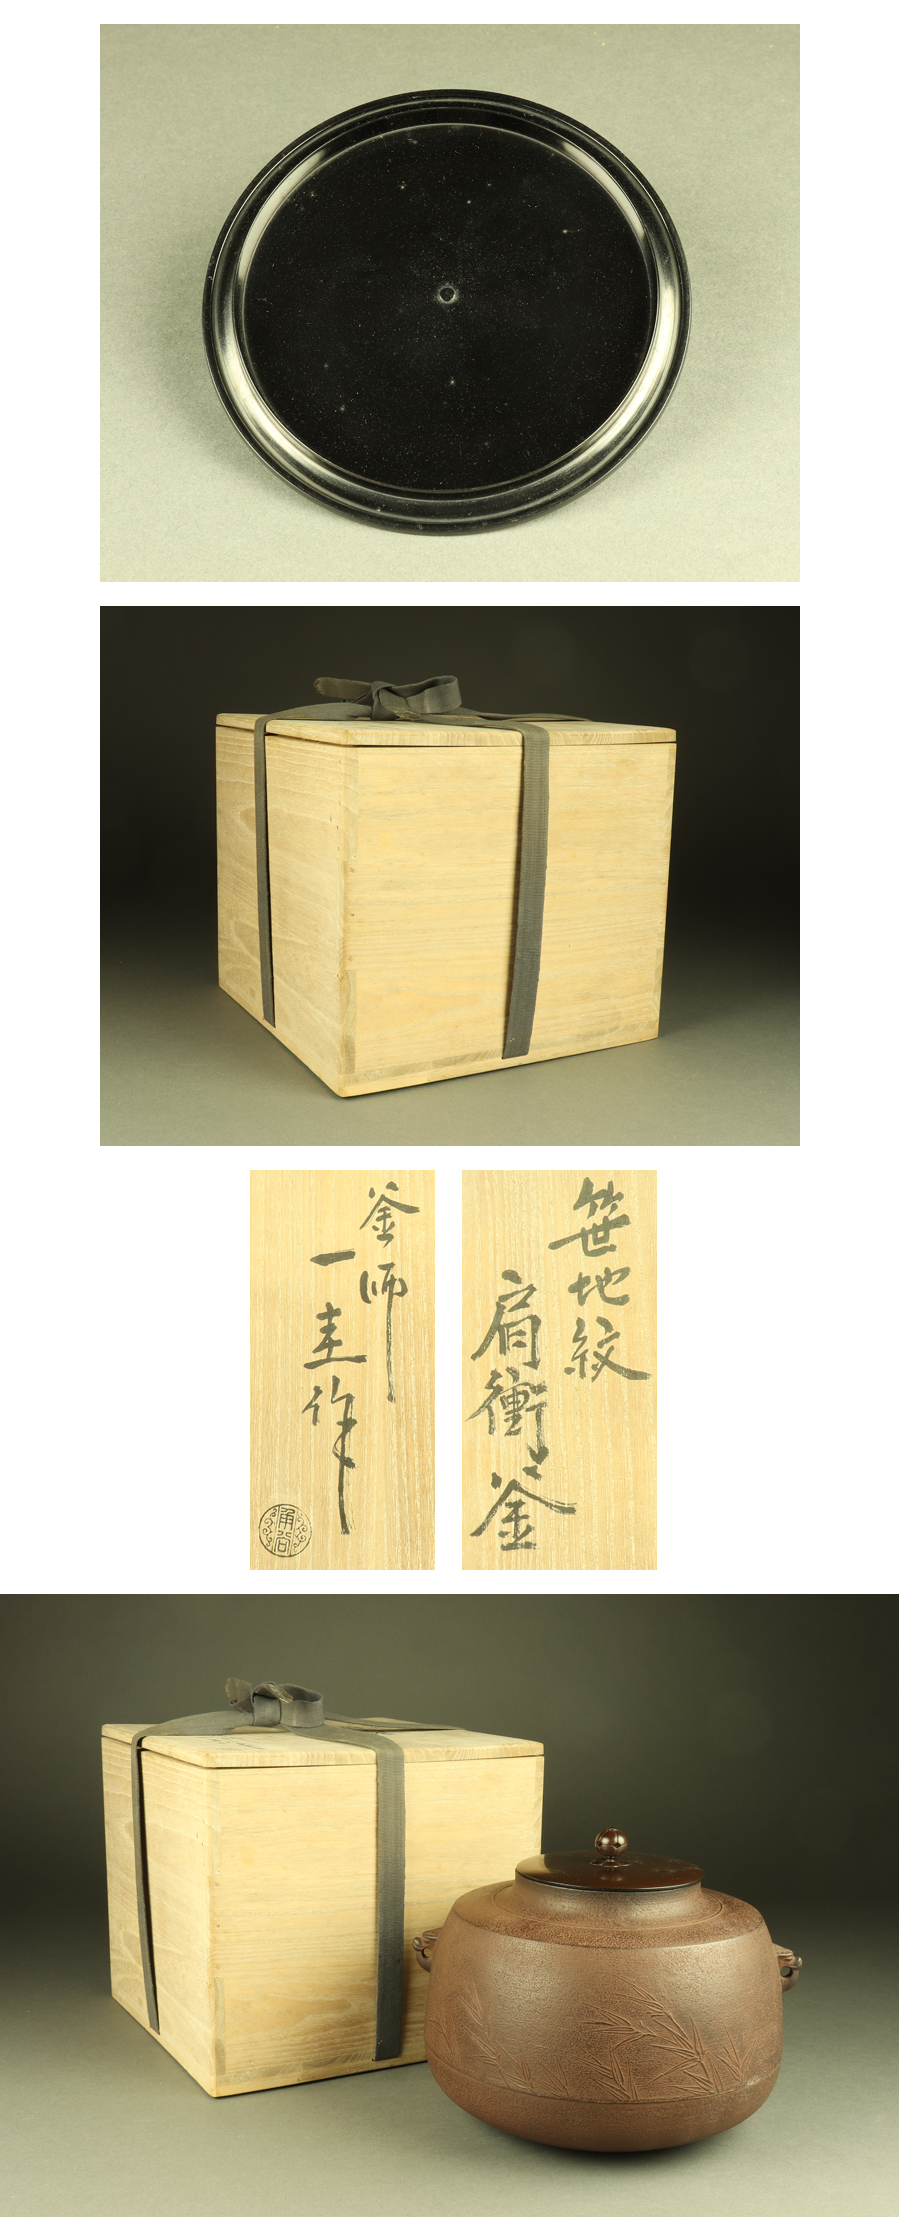 笹地紋
肩衝釜
釜師
一圭作
角谷